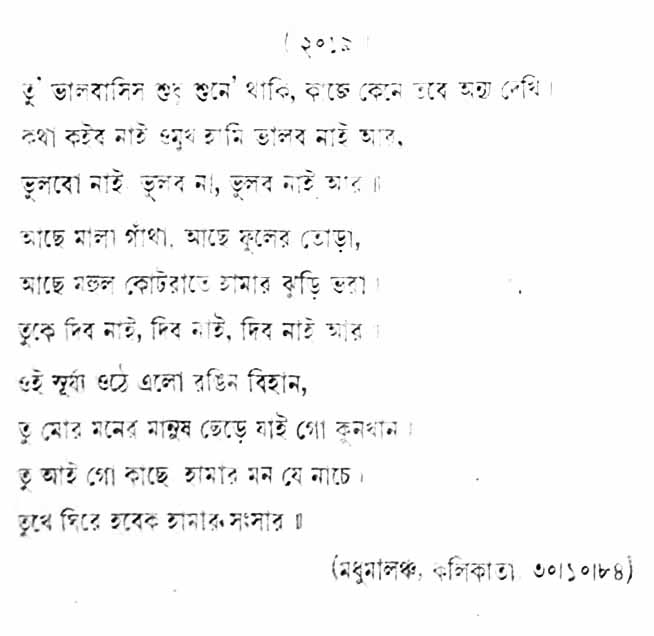 ( ২০১৯ )
তু' ভালবাসিস শুধু শুনে' থাকি, কাজে কেনে তবে অন্য দেখি।
কথা কইব নাই ওমুখ হামি ভালব নাই আর,
ভুলবো নাই ভুলব না, ভুলব নাই আর॥
আছে মালা গাঁথা, আছে ফুলের তোড়া,
আছে মহুল কোটরাতে হামার ঝুড়ি ভরা।
তুকে দিব নাই, দিব নাই, দিব নাই আর।
ওই সূর্য্য ওঠে এলো রঙিন বিহান,
তু মোর মনের মানুষ ছেড়ে যাই গো কুনখান।
তু আই গো কাছে হামার মন যে নাচে।
তুথে ঘিরে হবেক হামার সংসার॥
(মধুমালঞ্চ, কলিকাতা, ৩০।১০।৮৪)